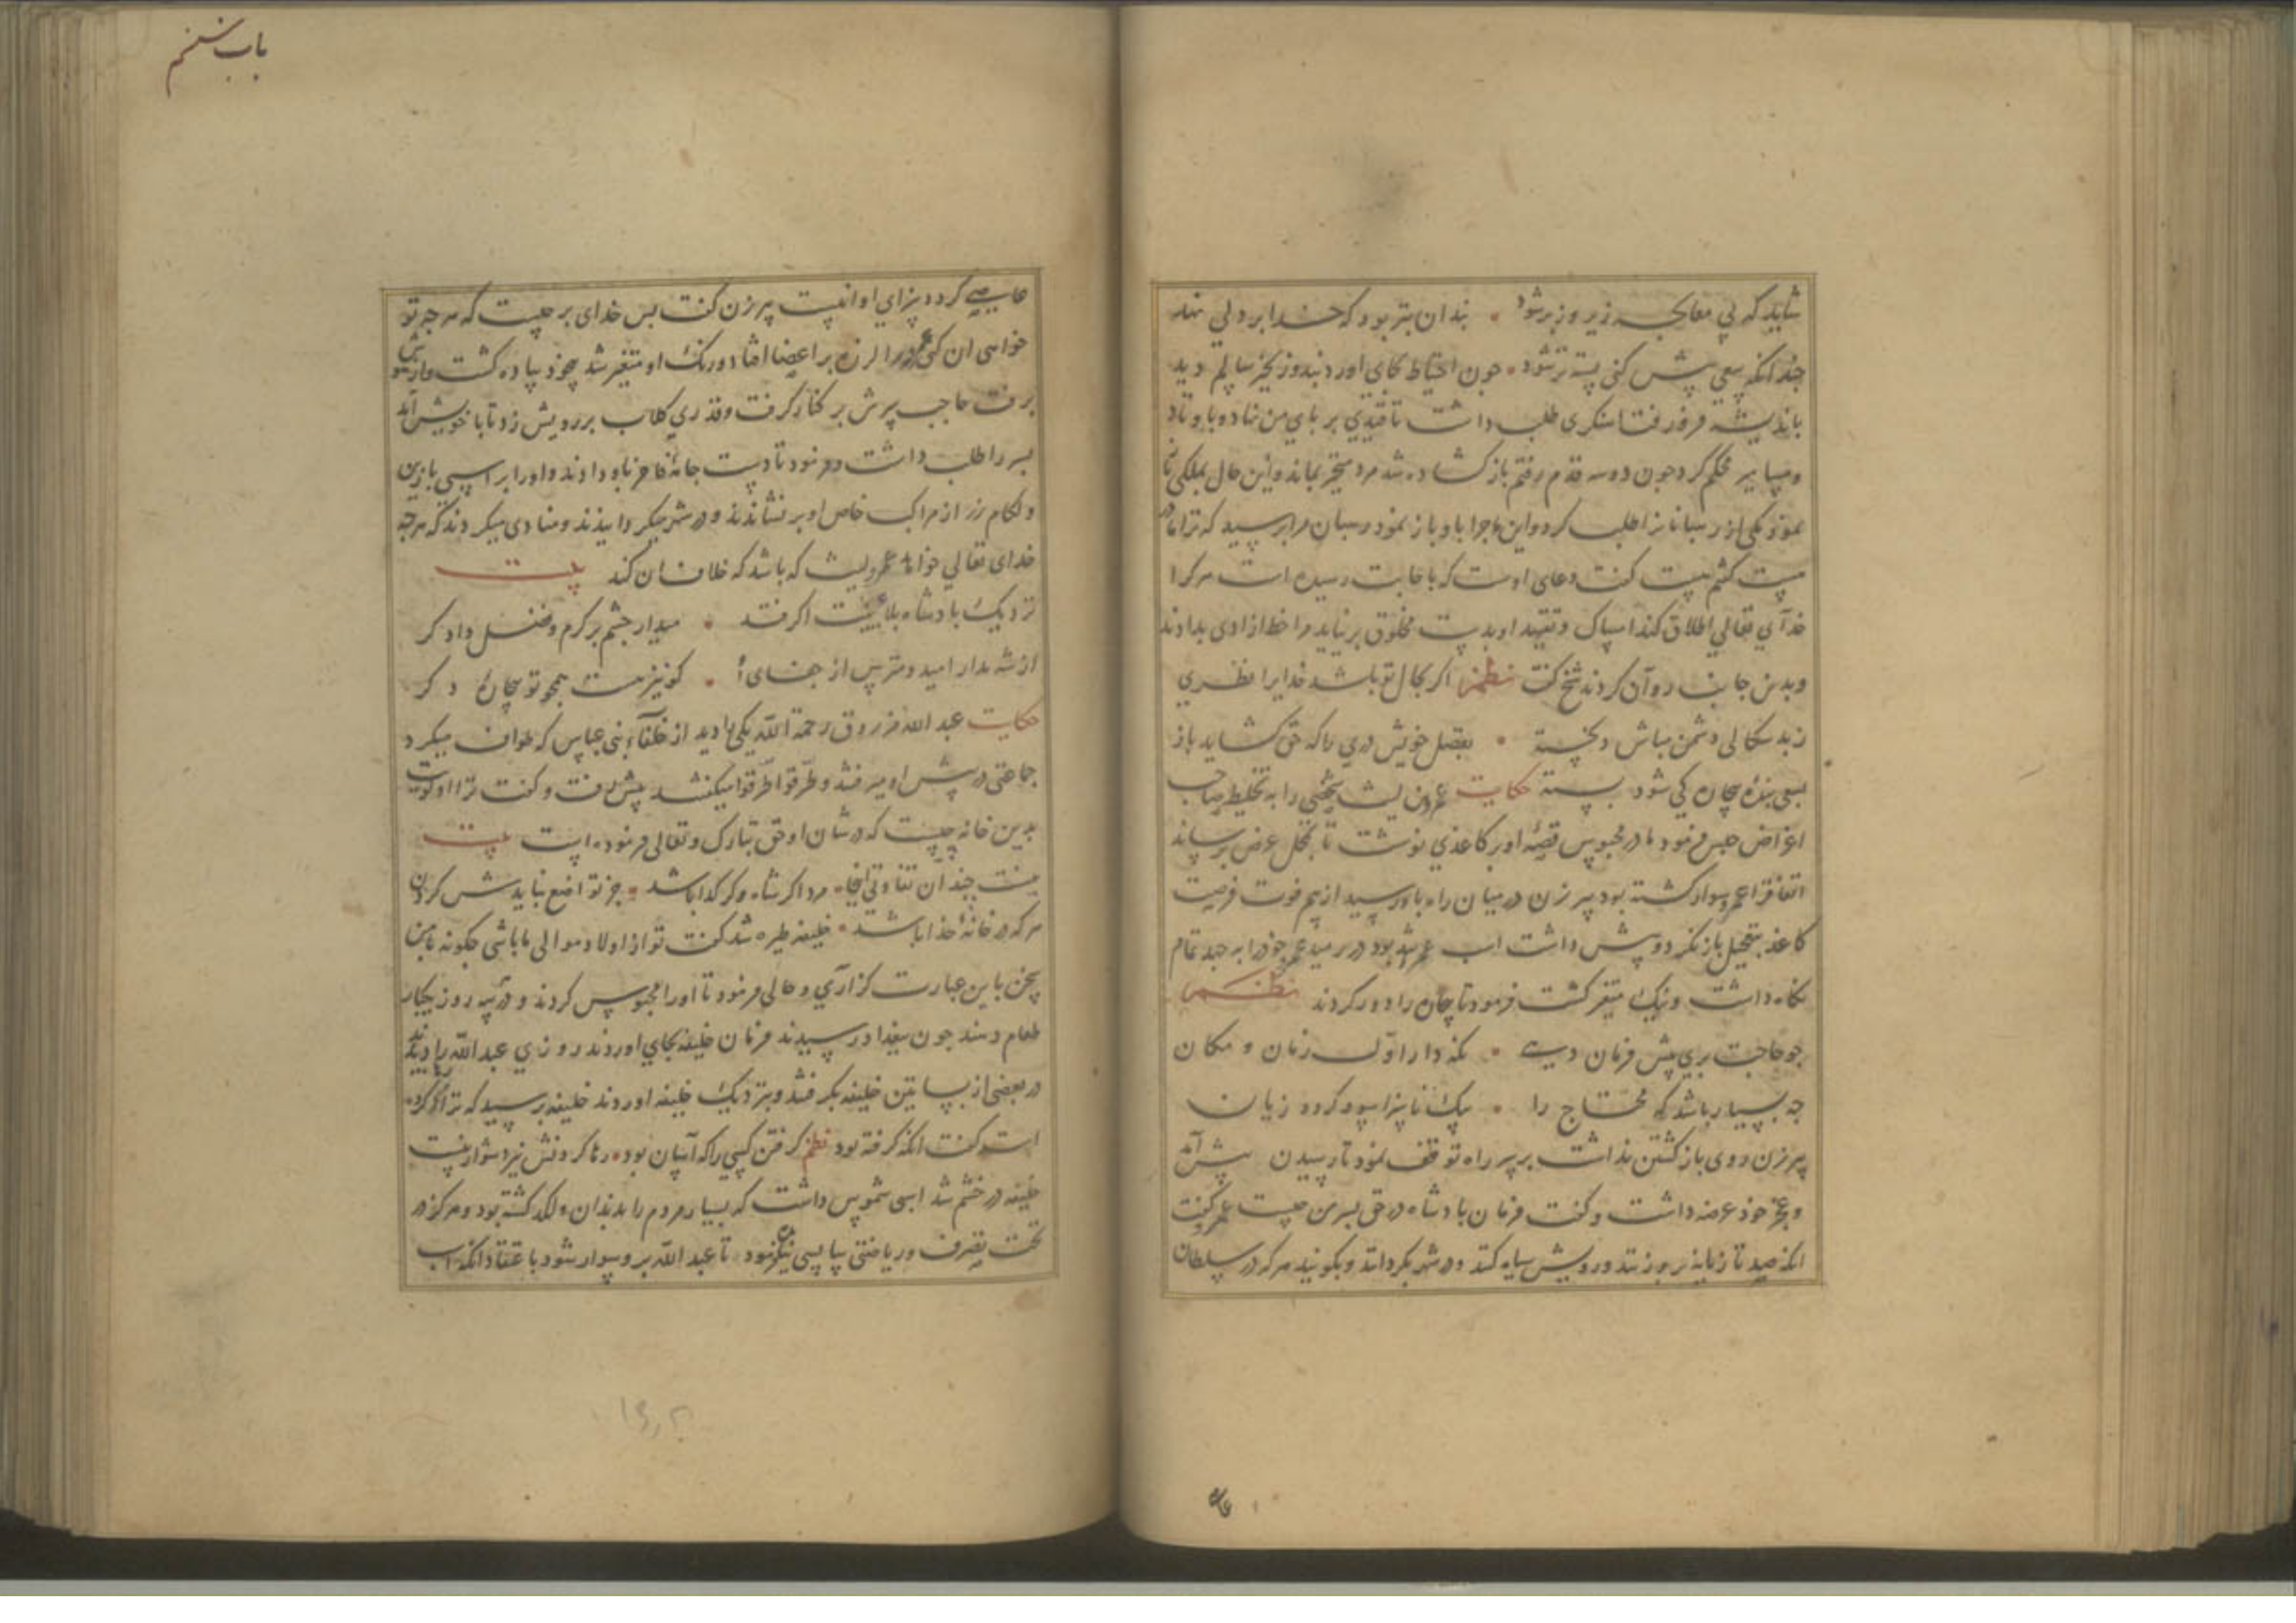 شاید که بی معالجه زیر و زبر شود • بندان بتر بود که خدا بر دلی نهد
چندانکه سعی پیش کنی بسته تر شود • جون احتیاط بجای اورد بند و زنجیر سالم دید
باندیشه فرو رفت اسنکری طلب داشت تا قیدی بر بای من نهاد و با وتاد
ومسامیر محکم کرد جون دو سه قدم رفتم باز کشاده شد مرد متحیر بماند و این حال بملکی
نمود یکی از رهبانانرا طلب کرد و این ماجرا باو باز نمود رهبان مرا برسید که ترا مادر
هست کفتم هست کفت دعای اوست که باجابت رسیده است هر کرا
خدآی تعالی اطلاق کند امساک و تقیید او بدست مخلوق بر نیاید مرا خط ازادی بدادند
وبدین جانب روآن کردند شیخ کفت نظم اکر بحال تو باشد خدایرا نظری
ز بد سکالی دشمن مباش دلخسته • بفضل خویش دری را که حق کشاید باز
بسعی بندهٔ بیجاره کی شود بسته حکایت عمرو لیث شخصی را به تخلیط صاحب
اغراض حبس فرمود مادر محبوس قصهٔ او بر کاغذی نوشت تا بمحل عرض برساند
اتفاقرا عمرو سوار کشته بود پیرزن در میان راه باو رسید از بیم فوت فرصت
کاغذ بتعجیل باز کرد و پیش داشت اسب عمرو شد بود در رمید عمرو خودرا به جهد تمام
نکاه داشت و نیک متغیر کشت فرمود تا بیجاره را دور کردند نظم
جو حاجت بری پیش فرمان دهی • نکه دار اول زمان و مکان
جه بسیار باشد که محتاج را • یک ناسزا سود کردد زیان
پیرزن روی باز کشتن نداشت بر سر راه توقف نمود تا رسیدن پیش آمد
و عجز خود عرضه داشت و کفت فرمان بادشاه در حق بسر من جیست عمرو کفت
انکه صد تازیانه بر وی زنند و رویش سیاه کنند و در شهر بکردانند و بکویند هر که در سلطان
باب ششم
عاصی کردد سزای او اینست پیرزن کفت بس خدای بر جیست که هر جه تو
خواهی ان کنی عمرورا لرزه بر اعضا افتاد و رنک او متغیر شد
برفت حاجب سرش بر کنار کرفت و قدری کلاب بر رویش زد تا با خویش آمد
بسر را طلب داشت و فرمود تا دست جامهٔ فاخر باو دادند و اورا بر اسبی با زین
ولکام زر از مراکب خاص او بر نشاندند و در شهر میکردانیدند و منادی میکردند که هر جه
خدای تعالی خواهد عمرو لیث که باشد که خلاف ان کند بیت
نزدیک بادشاه بلابیت اکر فتد • میدار جشم بر کرم و فضل دادکر
از شه مدار امید و مترس از جفای او • کو نیز هست همجو تو بیجارهٔ دکر
حکایت عبد الله مرزوق رحمة الله یکی را دید از خلفآء بنی عباس که طواف میکرد
جماعتی در پیش او میرفتند و طرّقوا طرّقوا میکفتند پیش رفت و کفت ترا اولویت
بدین خانه جیست که در شان او حق تبارک و تعالی فرموده است بیت
نیست جندان تفاوتی اینجا • مرد اکر شاه و کر کدا باشد • جز تواضع نبایدش کردن
هر که در خانهٔ خدا باشد • خلیفه طیره شد کفت تو از اولاد موالی ما باشی جکونه با من
سخن باین عبارت کزاری و حالی فرمود تا اورا محبوس کردند و در سه روز یکبار
طعام دهند جون ببغداد رسیدند فرمان خلیفه بجای اوردند روزی عبد الله را دیدند
در بعضی از بساتین خلیفه بکرفتند و بنزدیک خلیفه اوردند خلیفه برسید که ترا که رها کرده
است کفت انکه کرفته بود نظم کرفتن کسی را که آسان بود • رها کردنش نیز دشوار نیست
خلیفه در خشم شد اسبی شموس داشت که بسیار مردم را بدندان و لکد کشته بود و هرکز در
تحت تصرف و ریاضتی سایسی نه فرمود تا عبد الله بر و سوار شود باعتقاد انکه اسب